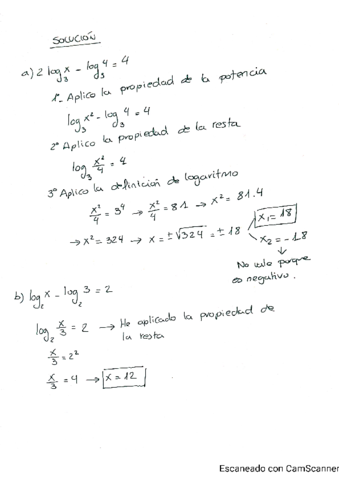 SOLUCIÓN
a) 2 log₃ x - log₃ 4 = 4
1º- Aplico la propiedad de la potencia
log₃ x² - log₃ 4 = 4
2º Aplico la propiedad de la resta
log₃ x²/4 = 4
3º Aplico la definición de logaritmo
x²/4 = 3⁴ → x²/4 = 81 → x² = 81.4
→ x² = 324 → x = ±√324 = ± 18
x₁ = 18
x₂ = -18
↓
No vale porque
es negativo.
b) log₂ x - log₂ 3 = 2
log₂ x/3 = 2 → He aplicado la propiedad de
la resta
x/3 = 2²
x/3 = 4 → x = 12
Escaneado con CamScanner